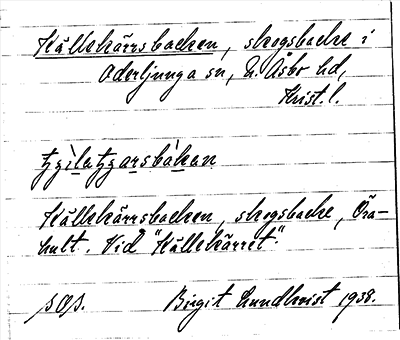 Källekärrsbacken, skogsbacke i
Oderljunga sn, N. Åsbo hd,
Krist. l.
tyzìlatyzarsbàkan
Källekärrsbacken, skogsbacke, Öra-
hult. Vid "Källekärret".
Birgit Lundkvist 1938.